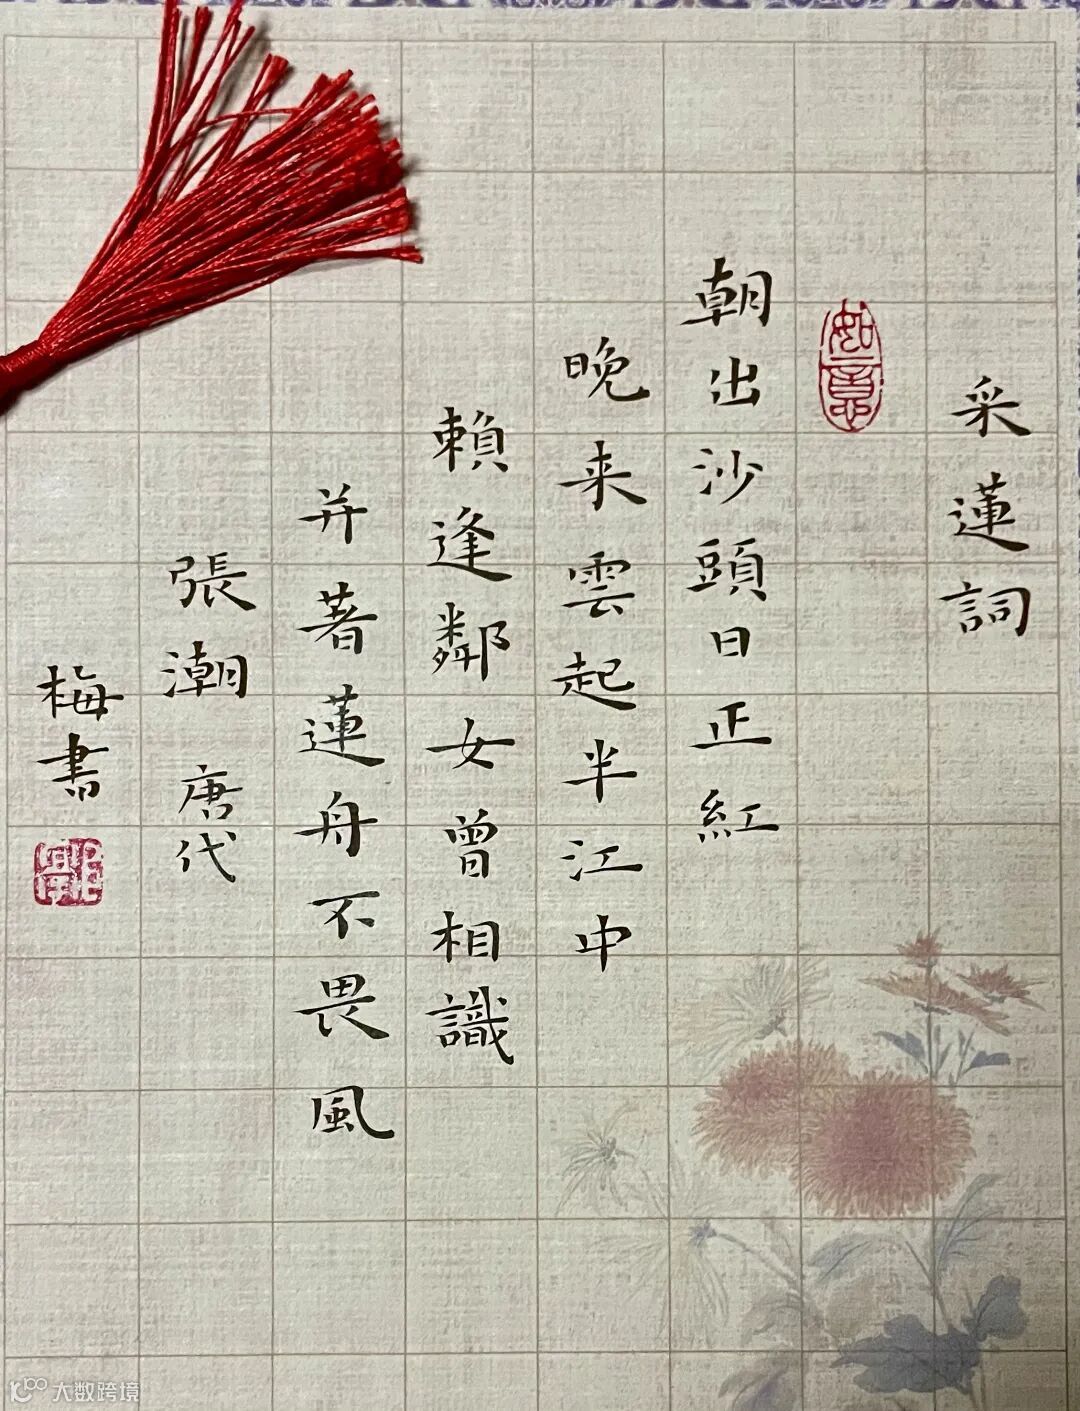 采蓮詞
如意
朝出沙頭日正紅
晚来雲起半江中
賴逢鄰女曾相識
并著蓮舟不畏風
張潮 唐代
梅書
大数跨境